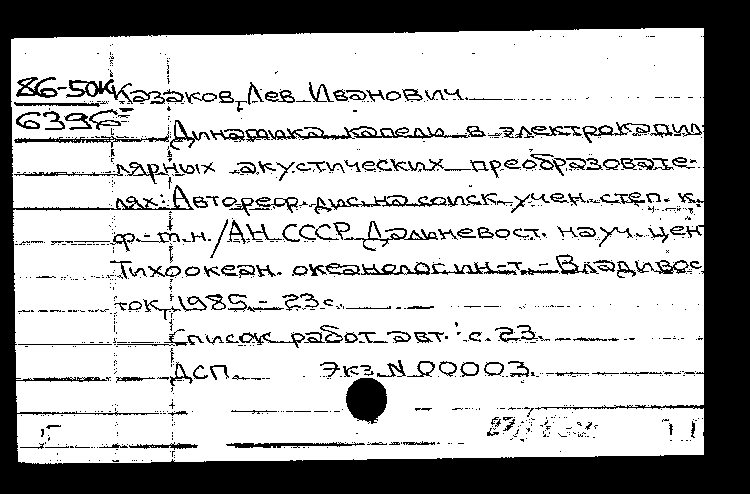 86-50К Казаков, Лев Иванович.
6396
Динамика капели в электрокапил
лярных акустических преобразовате-
лях: Автореф. дис. на соиск. учен. степ. к.
ф.-т.н. / АН СССР, Дальневост. науч. цен
Тихоокеан. океанолог. ин-т. - Владивос
ток, 1985. - 23 с.
Список работ авт.: с. 23.
ДСП. Экз. N 00003.